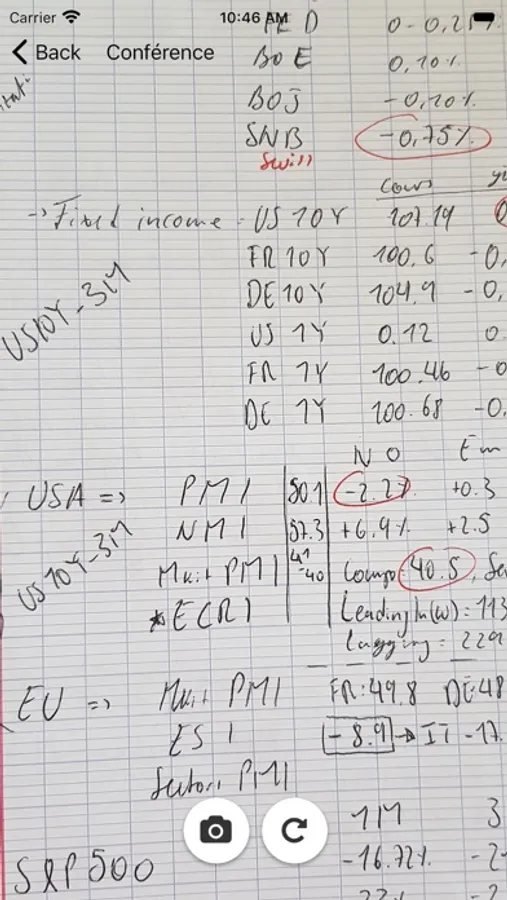 Carrier 10:46 AM
FED 0-0,25%
Back Conférence
BOE 0,10%
BOJ -0,10%
SNB -0,75%
Swiss
Cours
-> Fixed income = US 10Y 107.19 0
FR 10Y 100.6 -0,
US10Y-3M
DE 10Y 104.9 -0,
US 1Y 0.12 0
FR 1Y 100.46 -0
DE 1Y 100.68 -0,
NO Em
USA => PMI 50.1 -2.2% +0.3
NMI 57.3 +6.9% +2.5
US10Y-3M
Mkit PMI 41-40 Comp: 40.5, Se
*ECRI Leading In(w) = 113
Lagging = 229
EU => Mkit PMI FR:49.8 DE:48
ESI -8.9 -> IT -17.
Sector. PMI
1M 3
S&P500 -16.72% -2